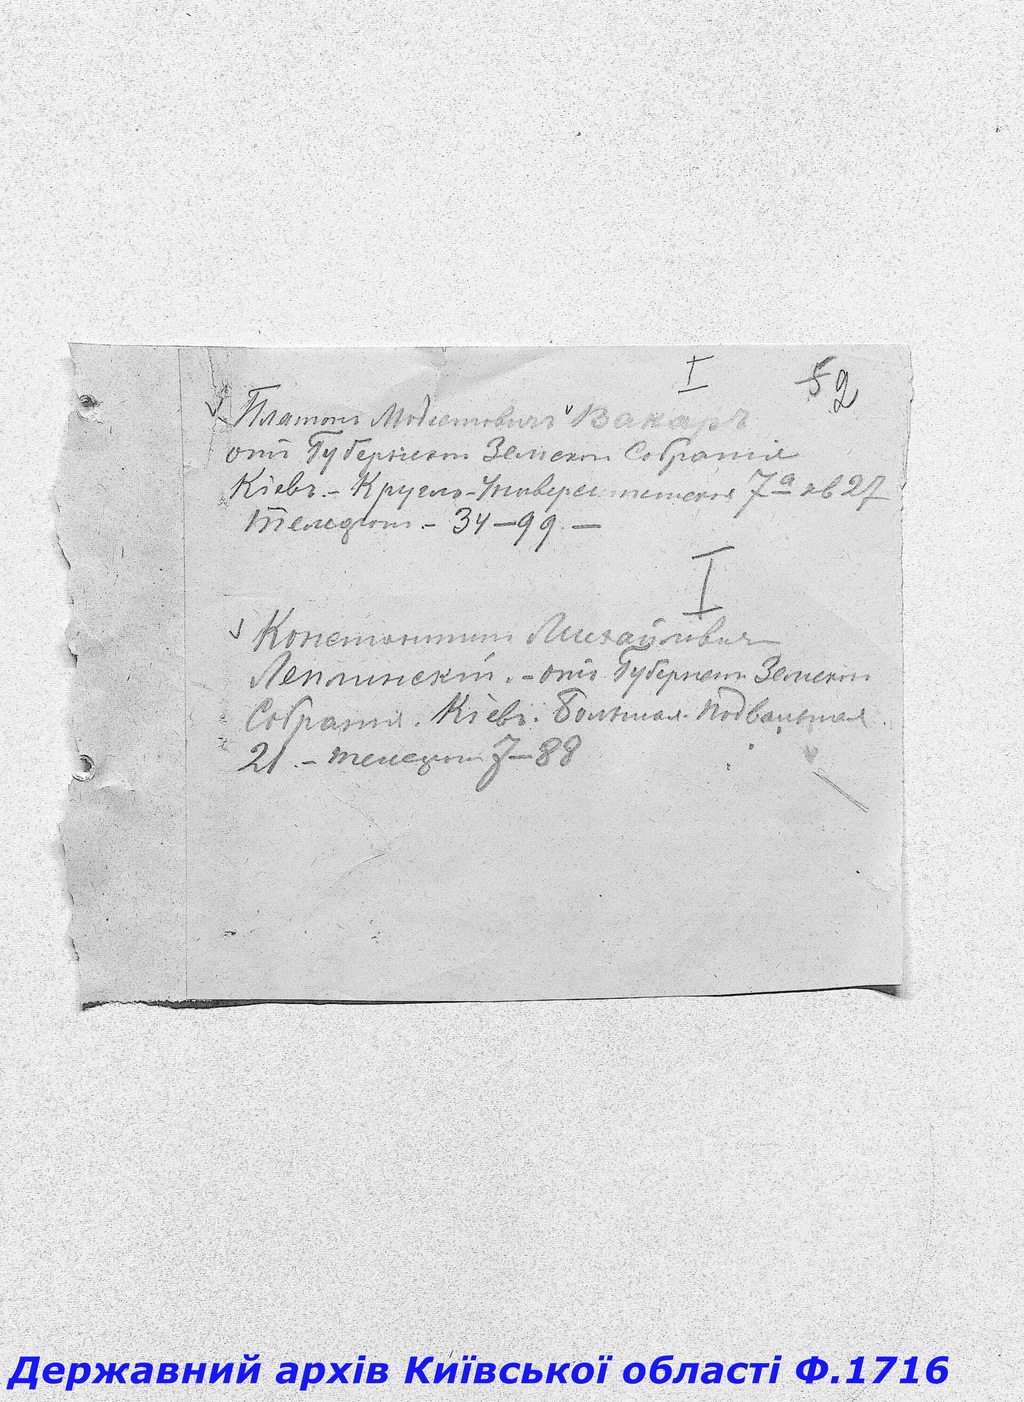 I 52
Платонъ Модестовичъ Вакаръ
отъ Губернскаго Земскаго Собранія
Кіевъ. – Кругло-Университетская 7а кв 27
Телефон – 34–99 –
I
Константинъ Михайлович
Леплинскій. – отъ Губернск. Земскаго
Собранія. Кіевъ. Большая Подвальная
21. – телефон 7–88
Державний архів Київської області Ф.1716